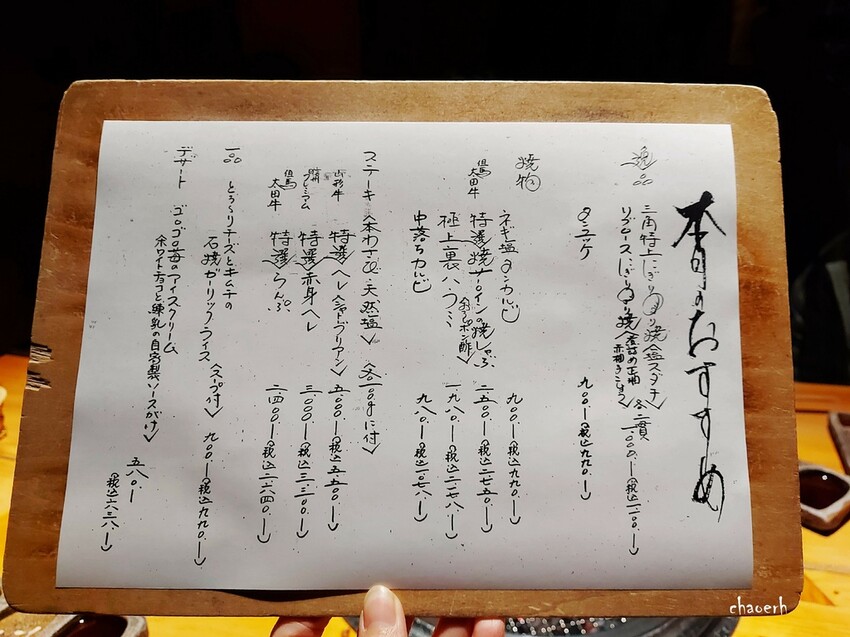 本日のおすすめ
逸品
三角特上にぎり〈炙り焼 塩スダチ〉
リブロースにぎり〈炙り焼〉
各二貫
二〇〇〇.ー〈税込二二〇〇.ー〉
タニッケ
九〇〇.ー〈税込九九〇.ー〉
焼物
ネギ塩タンカルビ
九〇〇.ー〈税込九九〇.ー〉
但馬太田牛
特選〈焼サーロインの焼しゃぶ おろしポン酢〉
二五〇〇.ー〈税込二七五〇.ー〉
極上裏ハラミ
一九八〇.ー〈税込二一七八.ー〉
中落ちカルビ
九八〇.ー〈税込一〇七八.ー〉
ステーキ〈本わさび、天然塩〉各100gに付〉
山形牛
特選〈ヘレ〈シャトーブリアン〉
五〇〇〇.ー〈税込五五〇〇.ー〉
プレミアム
特選〉赤身ヘレ
三〇〇〇.ー〈税込三三〇〇.ー〉
但馬太田牛
特選〉らんぷ
二四〇〇.ー〈税込二六四〇.ー〉
一品
とろ〜りチーズとキムチの
石焼ガーリックライス〈スープ付〉
九〇〇.ー〈税込九九〇.ー〉
デザート
ゴロゴロ苺のアイスクリーム
〈ホワイトチョコと練乳の自家製ソースがけ〉
五八〇.ー
〈税込六三八.ー〉
chaoerh